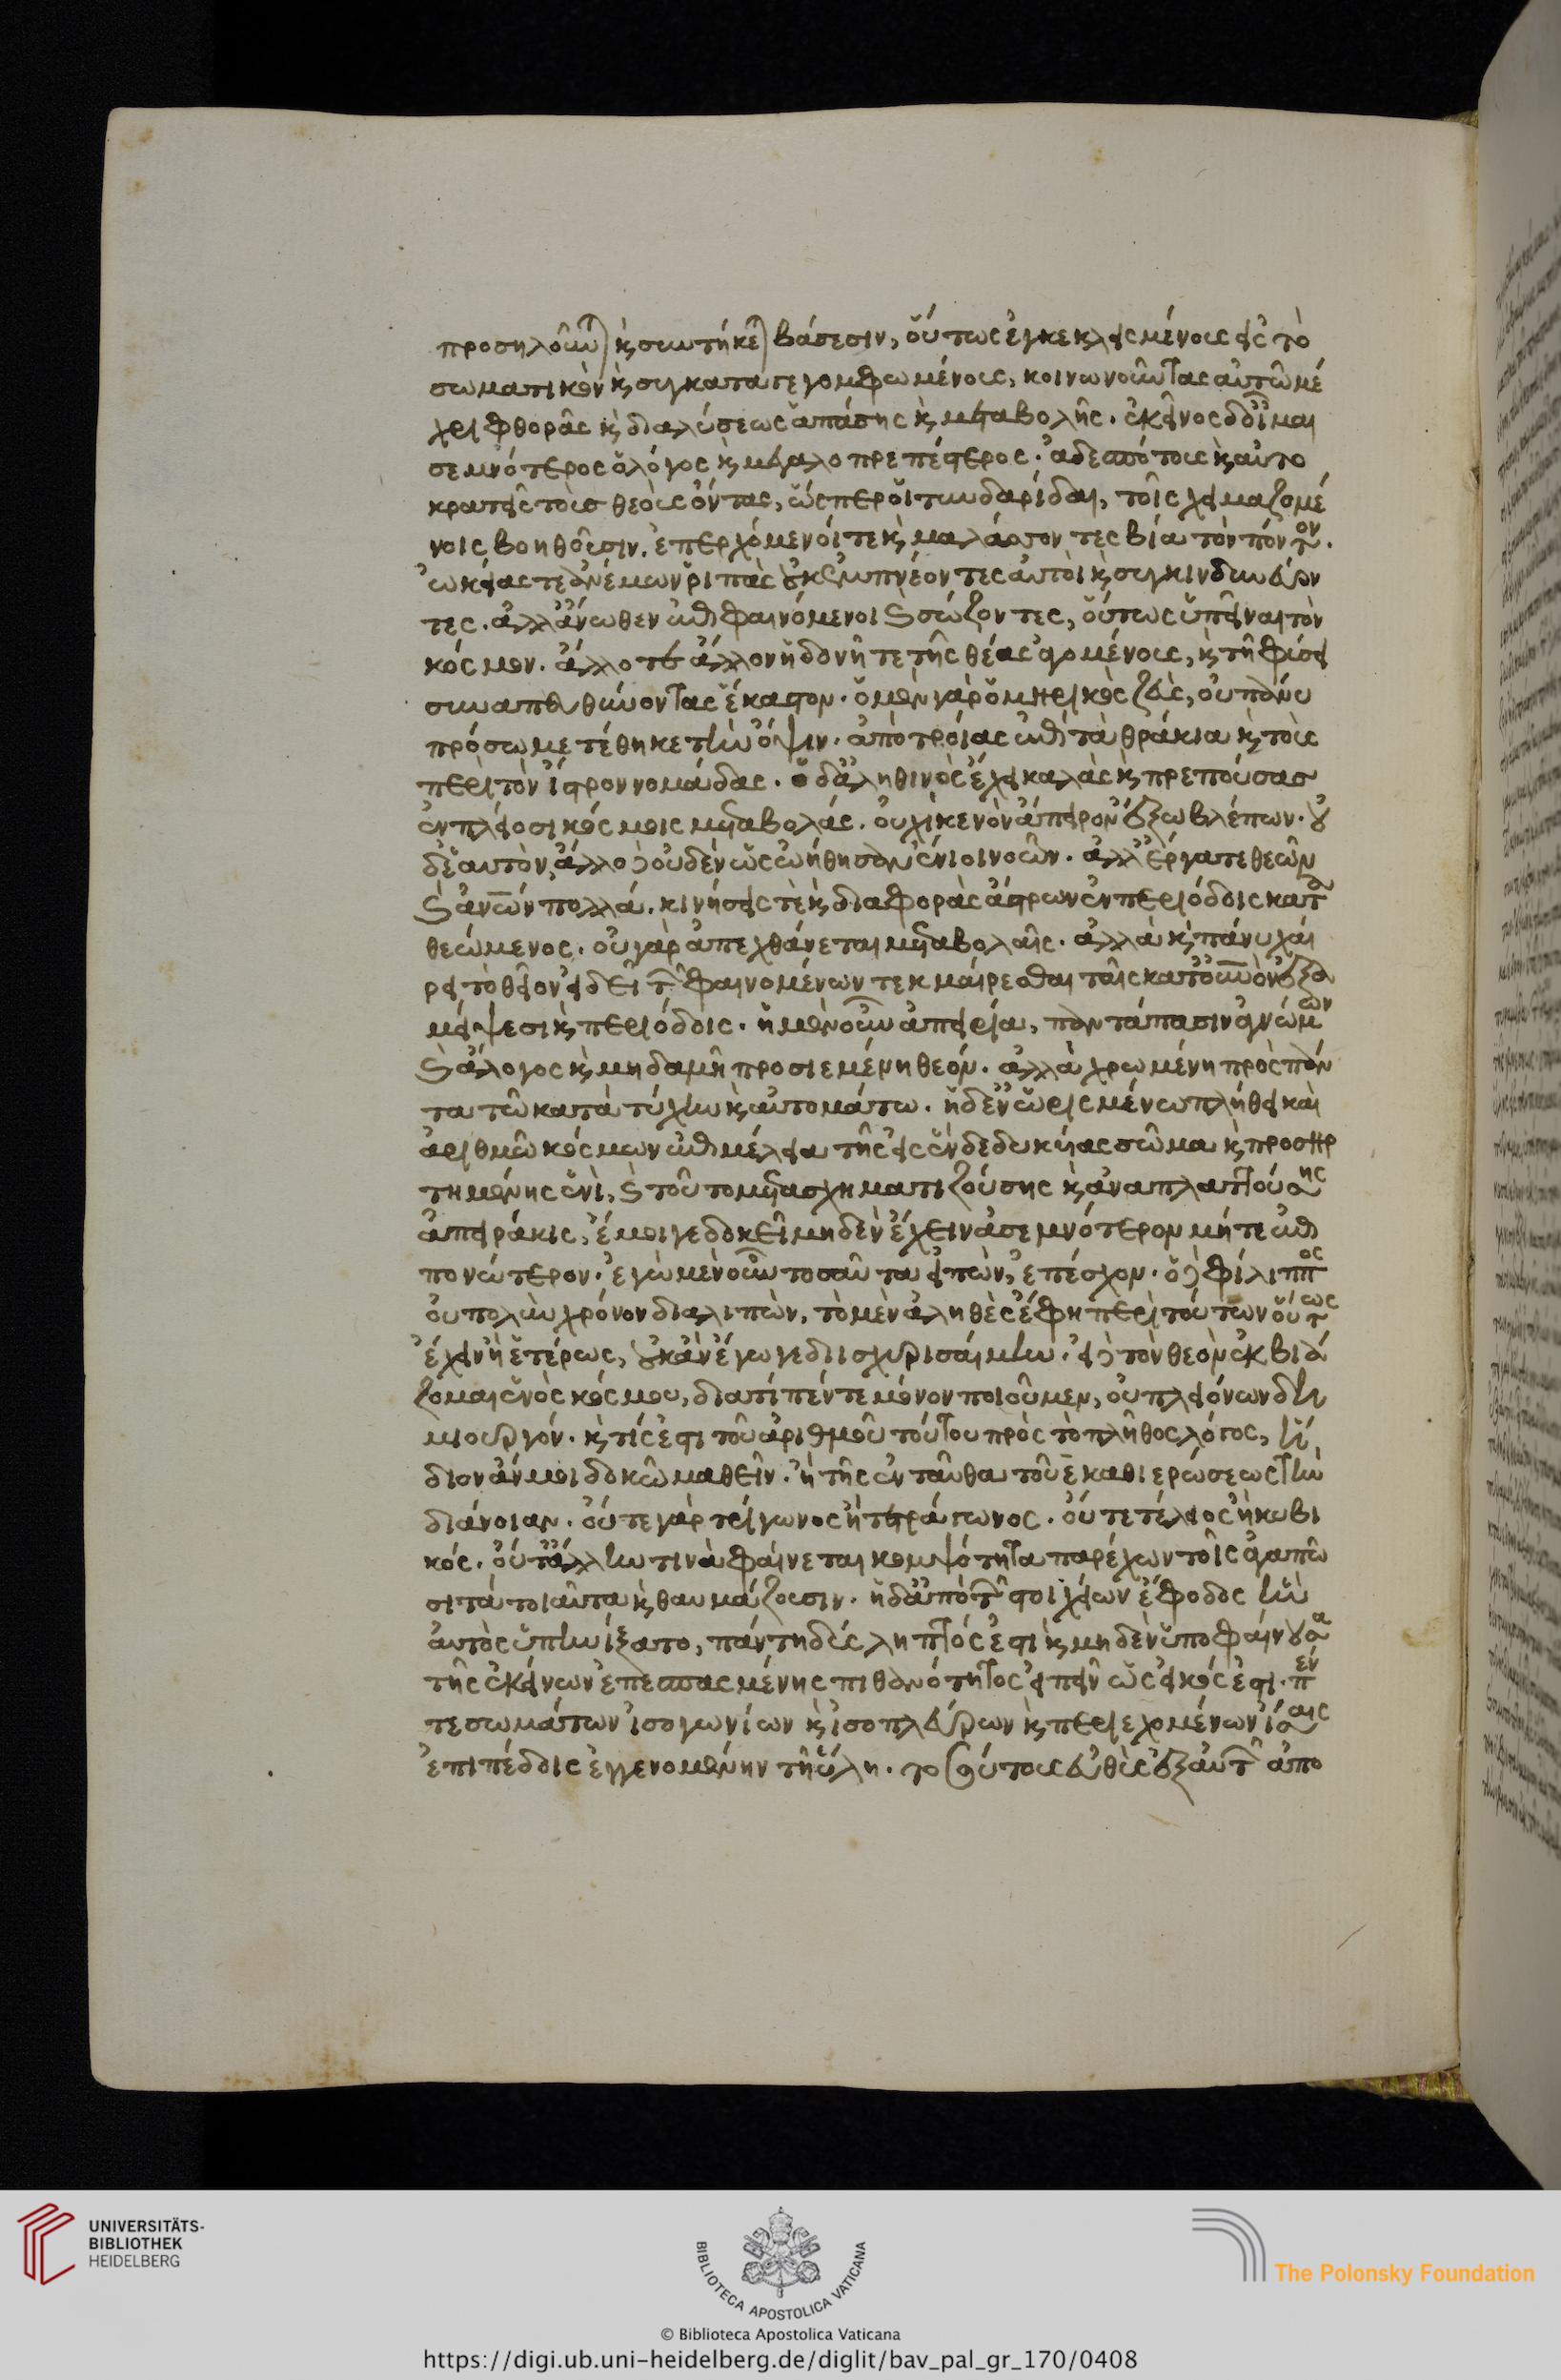 προσηλοῦν(ται) κ(αὶ) συντήκεν(ται) βάσεσιν, οὕτως ἐγκεκλεισμένους εἰς τὸ
σωματικὸν κ(αὶ) συγκαταγεγομφωμένους, κοινωνοῦντας αὐτῶ μέ
χρι φθορᾶς κ(αὶ) διαλύσεως ἁπάσης κ(αὶ) μεταβολῆς. ἐκεῖνος δ' οἶμαι
σεμνότερος ὁ λόγος κ(αὶ) μεγαλοπρεπέστερος. ἀδεσπότους κ(αὶ) αὐτο
κρατεῖς τοὺς θεοὺς ὄντας, ὥσπερ οἱ τυνδαρίδαι, τοῖς χειμαζομέ
νοις βοηθοῦσιν. ἐπερχόμενοί τε κ(αὶ) μαλάσσοντες βία τὸν πόντον.
ὠκείας τε ἀνέμων ῥιπὰς οὐκ ἐμπλέοντες αὐτοὶ κ(αὶ) συγκινδυνεύον
τες. ἀλλ' ἄνωθεν ἐπιφαινόμενοι κ(αὶ) σώζοντες, οὕτως ὑπεῖναι τὸν
κόσμον. ἄλλοτε ἄλλον ἡδονῆ τε τῆς θέας ἀγομένους, κ(αὶ) τῆ φύσει
συναπευθύνοντας ἕκαστον. ὁ μὲν γὰρ ὁμηρικὸς ζεὺς, οὐ πάνυ
πρόσω μετέθηκε τὴν ὄψιν. ἀπὸ τροίας ἐπὶ τὰ θράκια κ(αὶ) τοὺς
περὶ τὸν ἴστρον νομάδας. ὁ δ' ἀληθινὸς ἔχει καλὰς κ(αὶ) πρεπούσας
ἐν πλείοσι κόσμοις μεταβολάς. οὐχὶ κενὸν ἄπειρον ἔξω βλέπων. οὐ
δὲ ἑαυτὸν, ἄλλο δὲ οὐδὲν ὡς ὠήθησαν ἔνιοι νοῶν. ἀλλ' ἔργα τε θεῶν
κ(αὶ) ἀνῶν πολλά. κινήσεις τε κ(αὶ) διαφορὰς ἄστρων ἐν περιόδοις κατα
θεώμενος. οὐ γὰρ ἀπεχθάνεται μεταβολαῖς. ἀλλὰ κ(αὶ) πάνυ χαί
ρει τὸ θεῖον εἰ δεῖ τῶν φαινομένων τεκμαίρεσθαι ταῖς κατ' οὐνὸν ἐξα
μείψεσι κ(αὶ) περιόδοις. ἡ μὲν οὖν ἀπειρία, παντάπασιν ἀγνώμων
κ(αὶ) ἄλογος κ(αὶ) μηδαμῆ προσιεμένη θεόν. ἀλλὰ χρωμένη πρὸς πάν
τα τῶ κατὰ τύχην κ(αὶ) αὐτομάτω. ἡ δ' ἐν ὡρισμένω πλήθει καὶ
ἀριθμῶ κόσμων ἐπιμέλεια τῆς εἰς ἓν δεδυκυίας σῶμα κ(αὶ) προσηρ
τημένης ἑνὶ, κ(αὶ) τοῦτο μετασχηματιζούσης κ(αὶ) ἀναπλαττούσης
ἀπειράκις, ἔμοιγε δοκεῖ μηδὲν ἔχειν ἀσεμνότερον μήτε ἐπι
πονώτερον. ἐγὼ μὲν οὖν τοσαῦτα εἰπὼν, ἐπέσχον. ὁ δὲ φίλιππος
οὐ πολὺν χρόνον διαλιπὼν, τὸ μὲν ἀληθὲς ἔφη περὶ τούτων οὕτως
ἔχειν ἢ ἑτέρως, οὐκ ἂν ἔγωγε διισχυρισαίμην. εἰ δὲ τὸν θεὸν ἐκβιά
ζομαι ἑνὸς κόσμου, διατί πέντε μόνον ποιοῦμεν, οὐ πλειόνων δη
μιουργόν. κ(αὶ) τίς ἐστι τοῦ ἀριθμοῦ τούτου πρὸς τὸ πλῆθος λόγος, ἥ
διον ἄν μοι δοκῶ μαθεῖν. ἢ τῆς ἐνταῦθα τοῦ ε̄ καθιερώσεως τὴν
διάνοιαν. οὔτε γὰρ τρίγωνος ἢ τετράγωνος. οὔτε τέλειος ἢ κυβι
κός. οὔτ' ἄλλην τινὰ φαίνεται κομψότητα παρέχων τοῖς ἀγαπῶ
σι τὰ τοιαῦτα κ(αὶ) θαυμάζουσιν. ἡ δ' ἀπὸ τῶν στοιχείων ἔφοδος ἣν
αὐτὸς ὑπηνίξατο, πάντη δύσληπτός ἐστι κ(αὶ) μηδὲν ὑποφαίνουσα
τῆς ἐκείνων ἐπεσπασμένης πιθανότητος εἰπεῖν ὡς εἰκός ἐστι. πέν
τε σωμάτων ἰσογωνίων κ(αὶ) ἰσοπλεύρων κ(αὶ) περιεχομένων ἴσοις
ἐπιπέδοις ἐγγενομένην τῆ ὕλη. τοσούτους εὐθὺς ἐξ αὐτῶν ἀπο
UNIVERSITÄTS-
BIBLIOTHEK
HEIDELBERG
BIBLIOTECA APOSTOLICA VATICANA
The Polonsky Foundation
© Biblioteca Apostolica Vaticana
https://digi.ub.uni-heidelberg.de/diglit/bav_pal_gr_170/0408